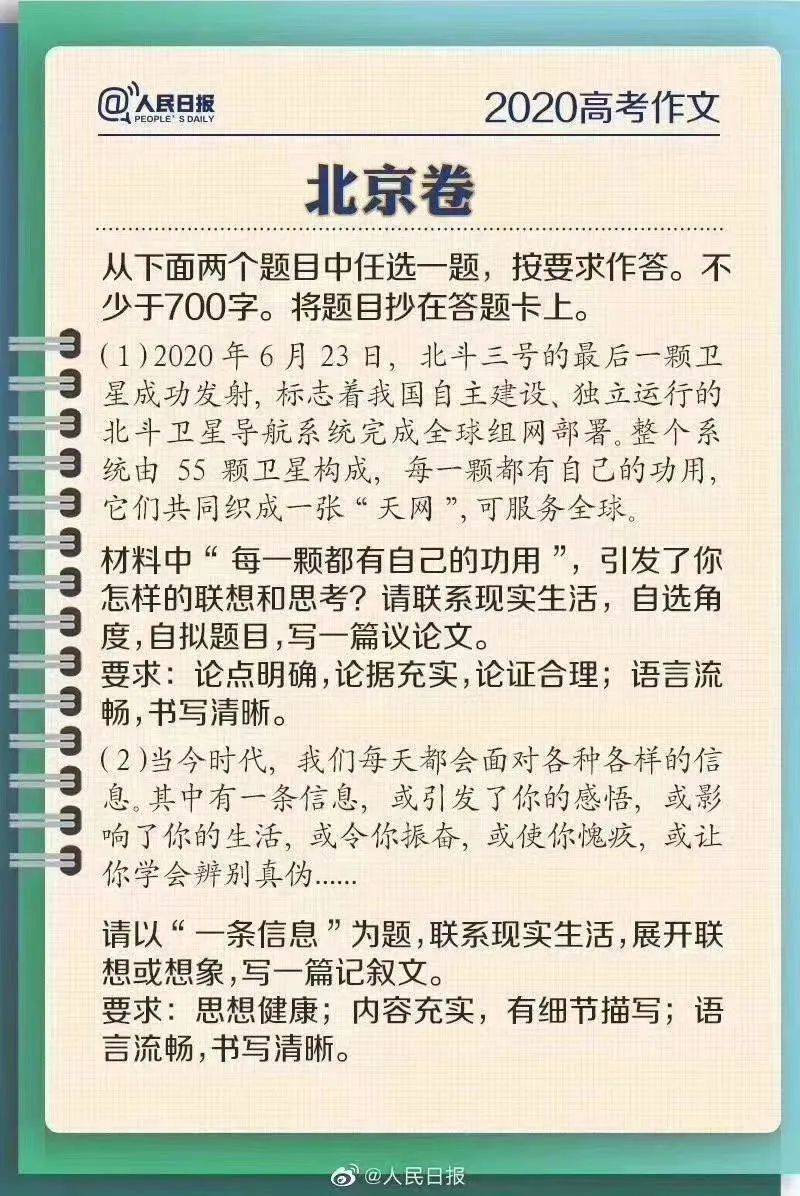 @人民日报
PEOPLE'S DAILY
2020高考作文
北京卷
从下面两个题目中任选一题，按要求作答。不
少于700字。将题目抄在答题卡上。
(1)2020年6月23日，北斗三号的最后一颗卫
星成功发射，标志着我国自主建设、独立运行的
北斗卫星导航系统完成全球组网部署。整个系
统由 55 颗卫星构成，每一颗都有自己的功用，
它们共同织成一张“天网”，可服务全球。
材料中“每一颗都有自己的功用”，引发了你
怎样的联想和思考？请联系现实生活，自选角
度，自拟题目，写一篇议论文。
要求：论点明确，论据充实，论证合理；语言流
畅，书写清晰。
(2)当今时代，我们每天都会面对各种各样的信
息。其中有一条信息，或引发了你的感悟，或影
响了你的生活，或令你振奋，或使你愧疚，或让
你学会辨别真伪......
请以“一条信息”为题，联系现实生活，展开联
想或想象，写一篇记叙文。
要求：思想健康；内容充实，有细节描写；语
言流畅，书写清晰。
@人民日报